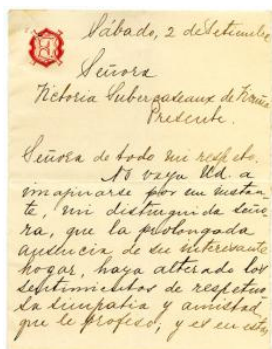 Sábado, 2 de Setiembre
Señora
Victoria Subercaseaux de Vicuña
Presente.
Señora de todo mi respeto.
No vaya Ud. a
imaginarse por un instan-
te, mi distinguida seño-
ra, que la prolongada
ausencia de su interesante
hogar, haya alterado los
sentimientos de respetuo
sa simpatía y amistad
que le profeso; y es en estos